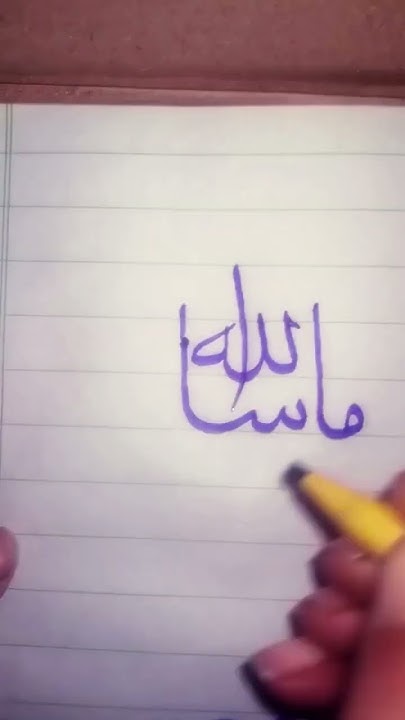 ماسا الله